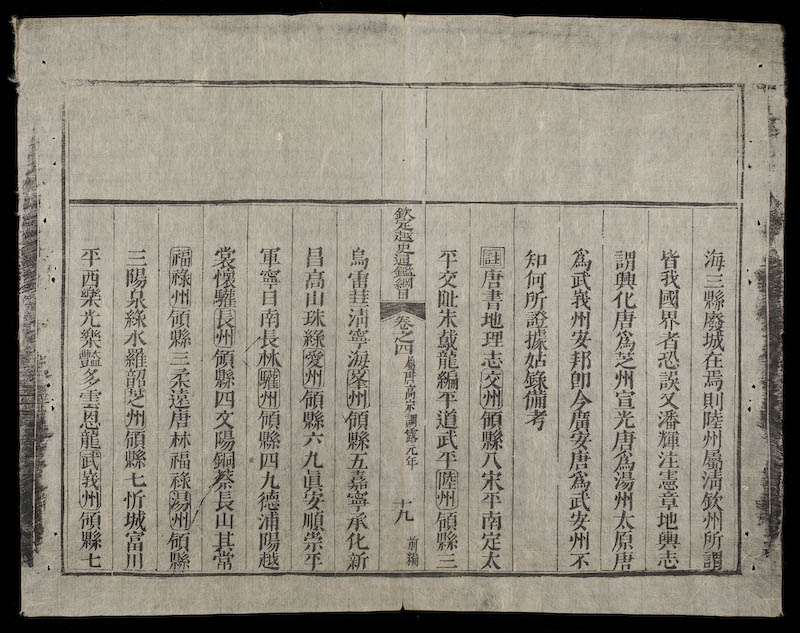 海三縣廢城在焉則陸州屬淸欽州所謂
皆我國界者恐誤又潘輝注憲章地輿志
謂興化唐爲芝州宣光唐爲湯州太原唐
爲武峩州安邦卽今廣安唐爲武安州不
知何所證據姑錄備考
註唐書地理志交州領縣八宋平南定太
平交趾朱䳒龍編平道武平陸州領縣三
欽定越史通鑑綱目 卷之四 屬唐高宗調露元年 十九 前編
烏雷華淸寧海峯州領縣五嘉寧承化新
昌高山珠綠愛州領縣六九眞安順崇平
軍寧日南長林驩州領縣四九德浦陽越
裳懷驩長州領縣四文陽銅蔡長山其常
福祿州領縣三柔遠唐林福祿湯州領縣
三湯泉綠水羅韶芝州領縣七忻城富川
平西樂光樂豔多雲思龍武峩州領縣七